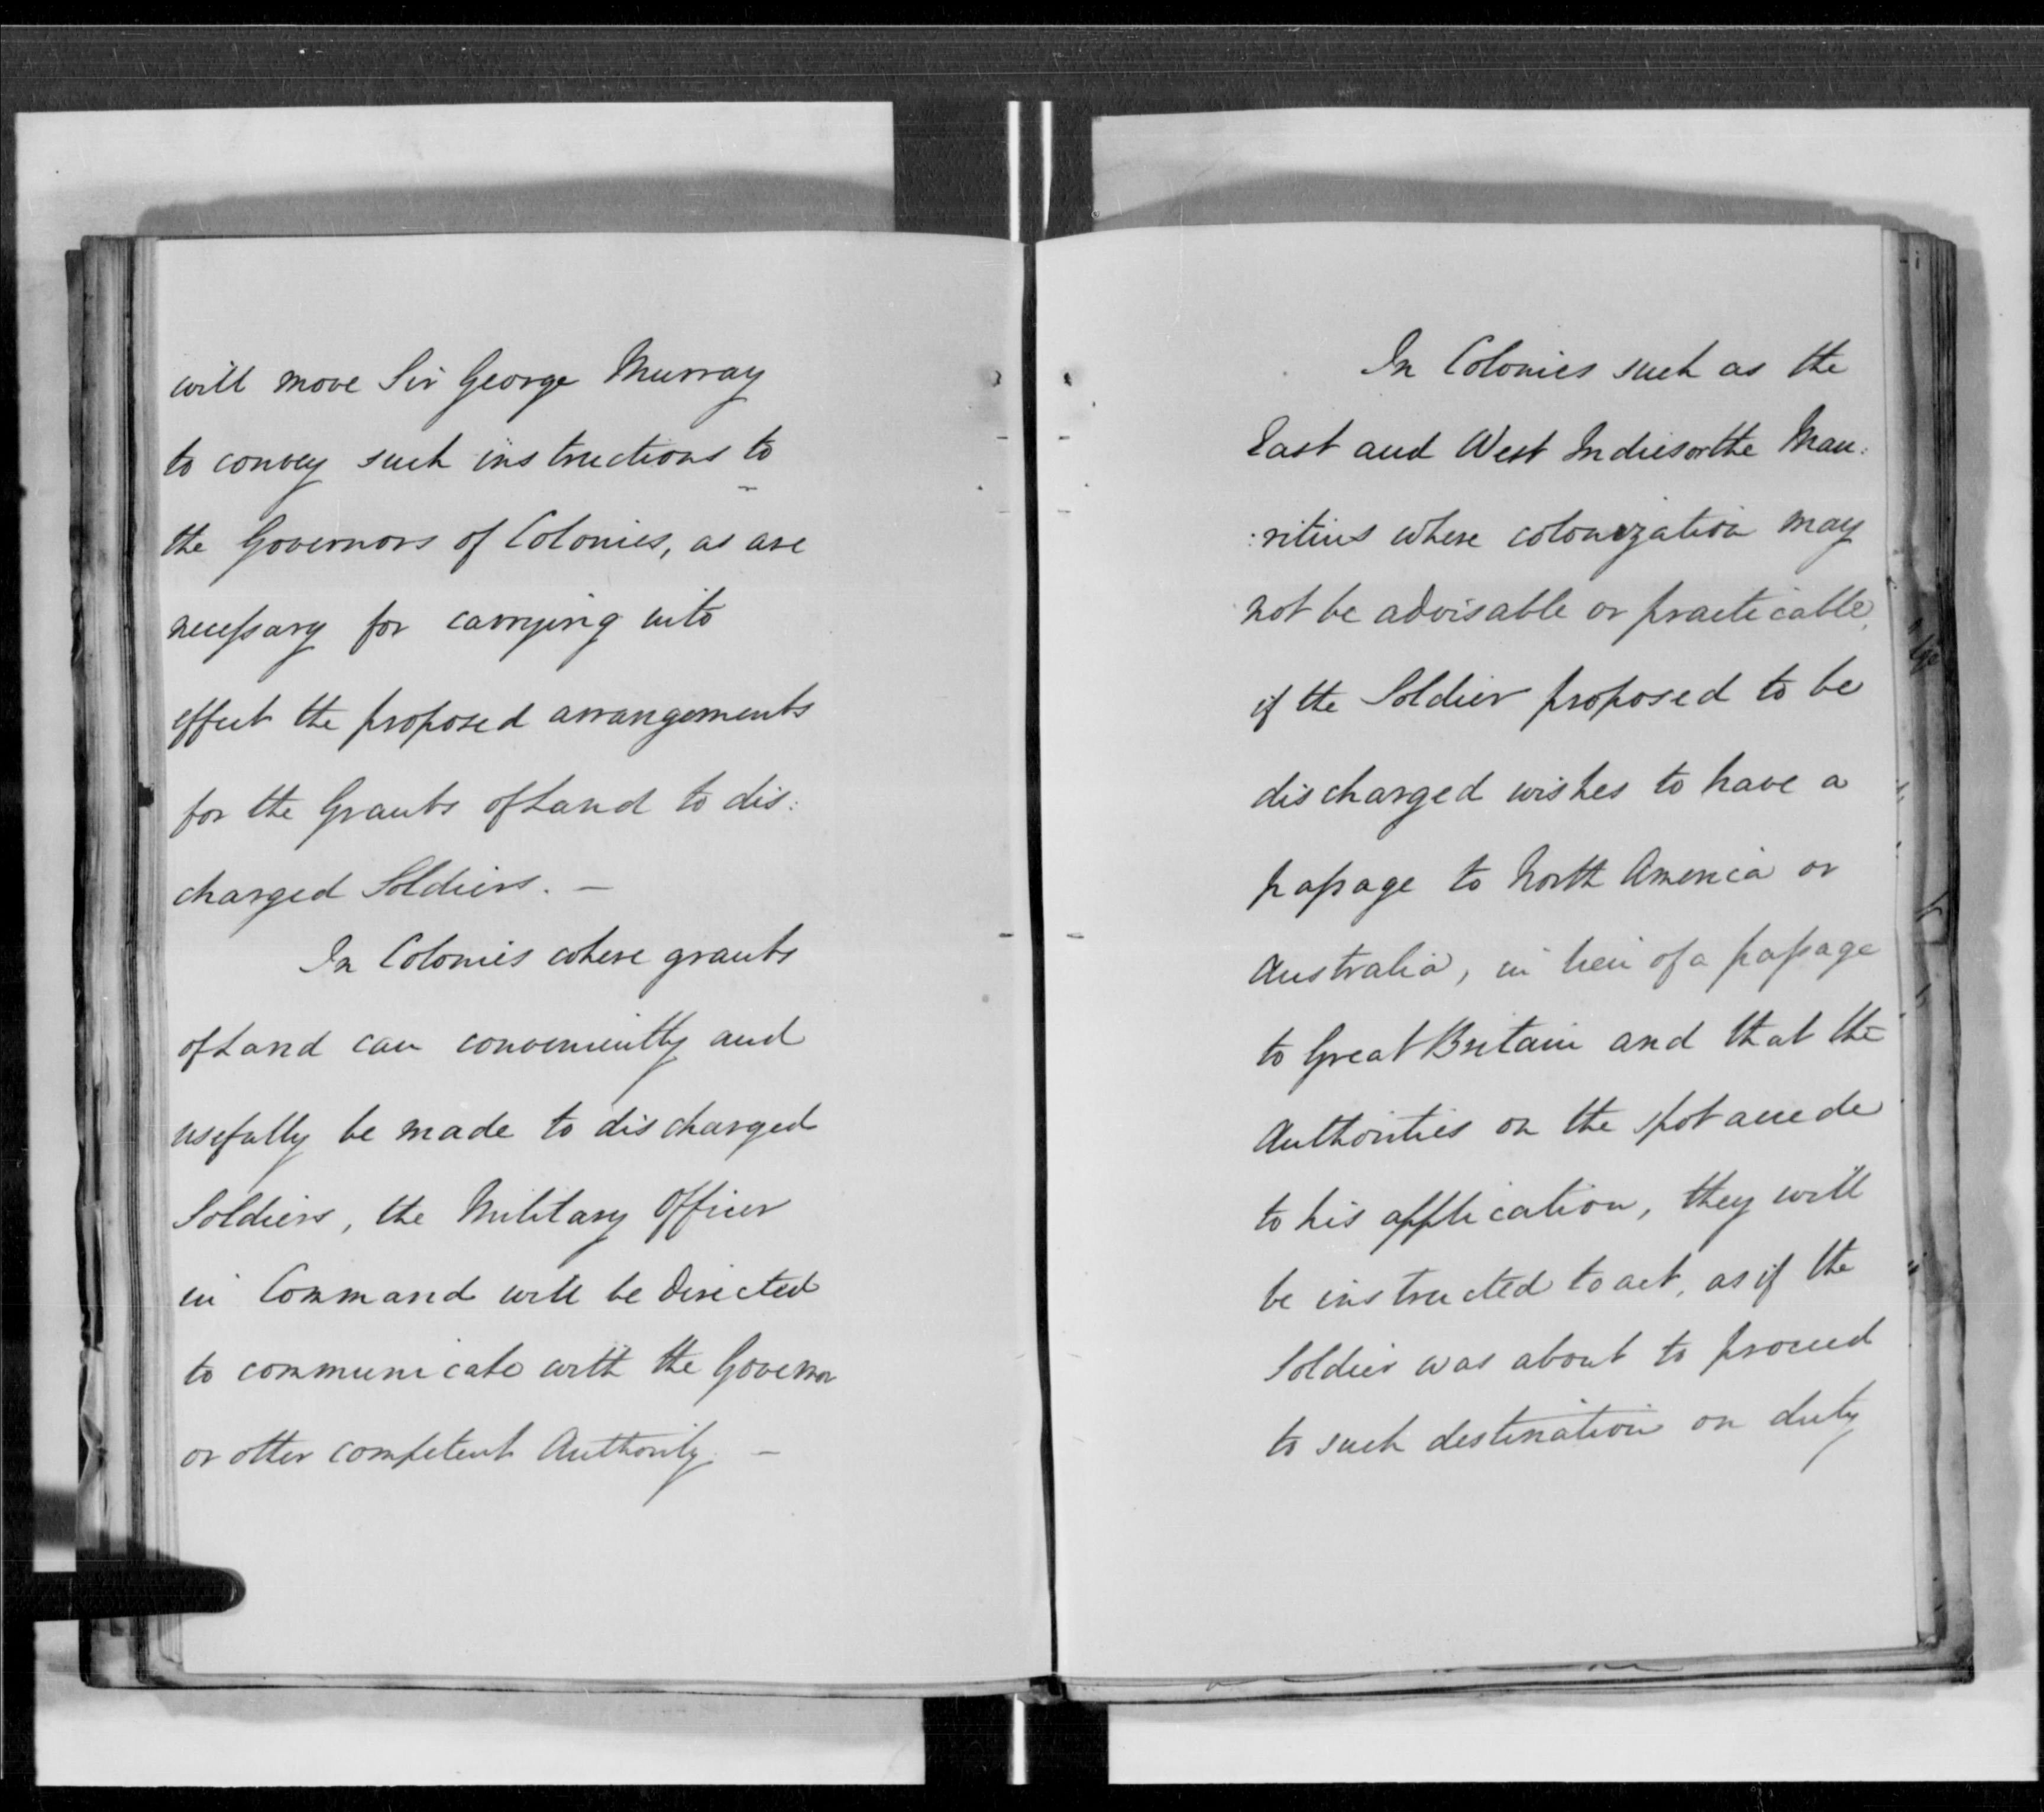 will move Sir George Murray
to convey such instructions to
the Governors of Colonies, as are
necessary for carrying into
effect the proposed arrangements
for the Grants of Land to dis:
charged Soldiers. —
In Colonies where grants
of Land can conveniently and
usefully be made to discharged
Soldiers, the Military Officer
in Command will be directed
to communicate with the Governor
or other competent Authority. —
In Colonies such as the
East and West Indies or the Mau:
:ritius where colonization may
not be advisable or practicable,
if the Soldier proposed to be
discharged wishes to have a
passage to North America or
Australia, in lieu of a passage
to Great Britain and that the
Authorities on the spot accede
to his application, they will
be instructed to act, as if the
Soldier was about to proceed
to such destination on duty